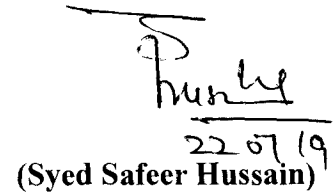 22 07 19
(Syed Safeer Hussain)